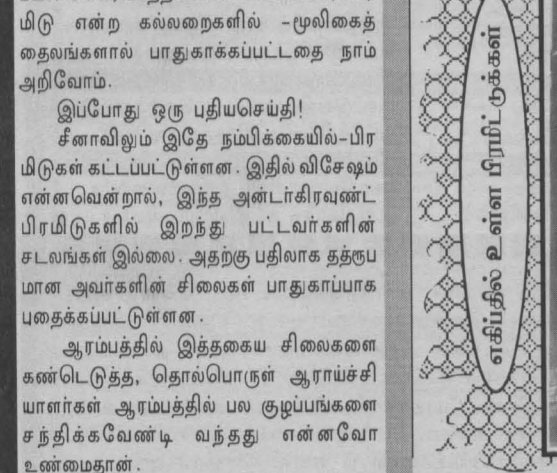 மிடு என்ற கல்லறைகளில் –மூலிகைத்
தைலங்களால் பாதுகாக்கப்பட்டதை நாம்
அறிவோம்.
இப்போது ஒரு புதியசெய்தி!
சீனாவிலும் இதே நம்பிக்கையில்–பிர
மிடுகள் கட்டப்பட்டுள்ளன. இதில் விசேஷம்
என்னவென்றால், இந்த அன்டர்கிரவுண்ட்
பிரமிடுகளில் இறந்து பட்டவர்களின்
சடலங்கள் இல்லை. அதற்கு பதிலாக தத்ரூப
மான அவர்களின் சிலைகள் பாதுகாப்பாக
புதைக்கப்பட்டுள்ளன.
ஆரம்பத்தில் இத்தகைய சிலைகளை
கண்டெடுத்த, தொல்பொருள் ஆராய்ச்சி
யாளர்கள் ஆரம்பத்தில் பல குழப்பங்களை
சந்திக்கவேண்டி வந்தது என்னவோ
உண்மைதான்.
எகிப்தில் உள்ள பிரமிட்டுக்கள்